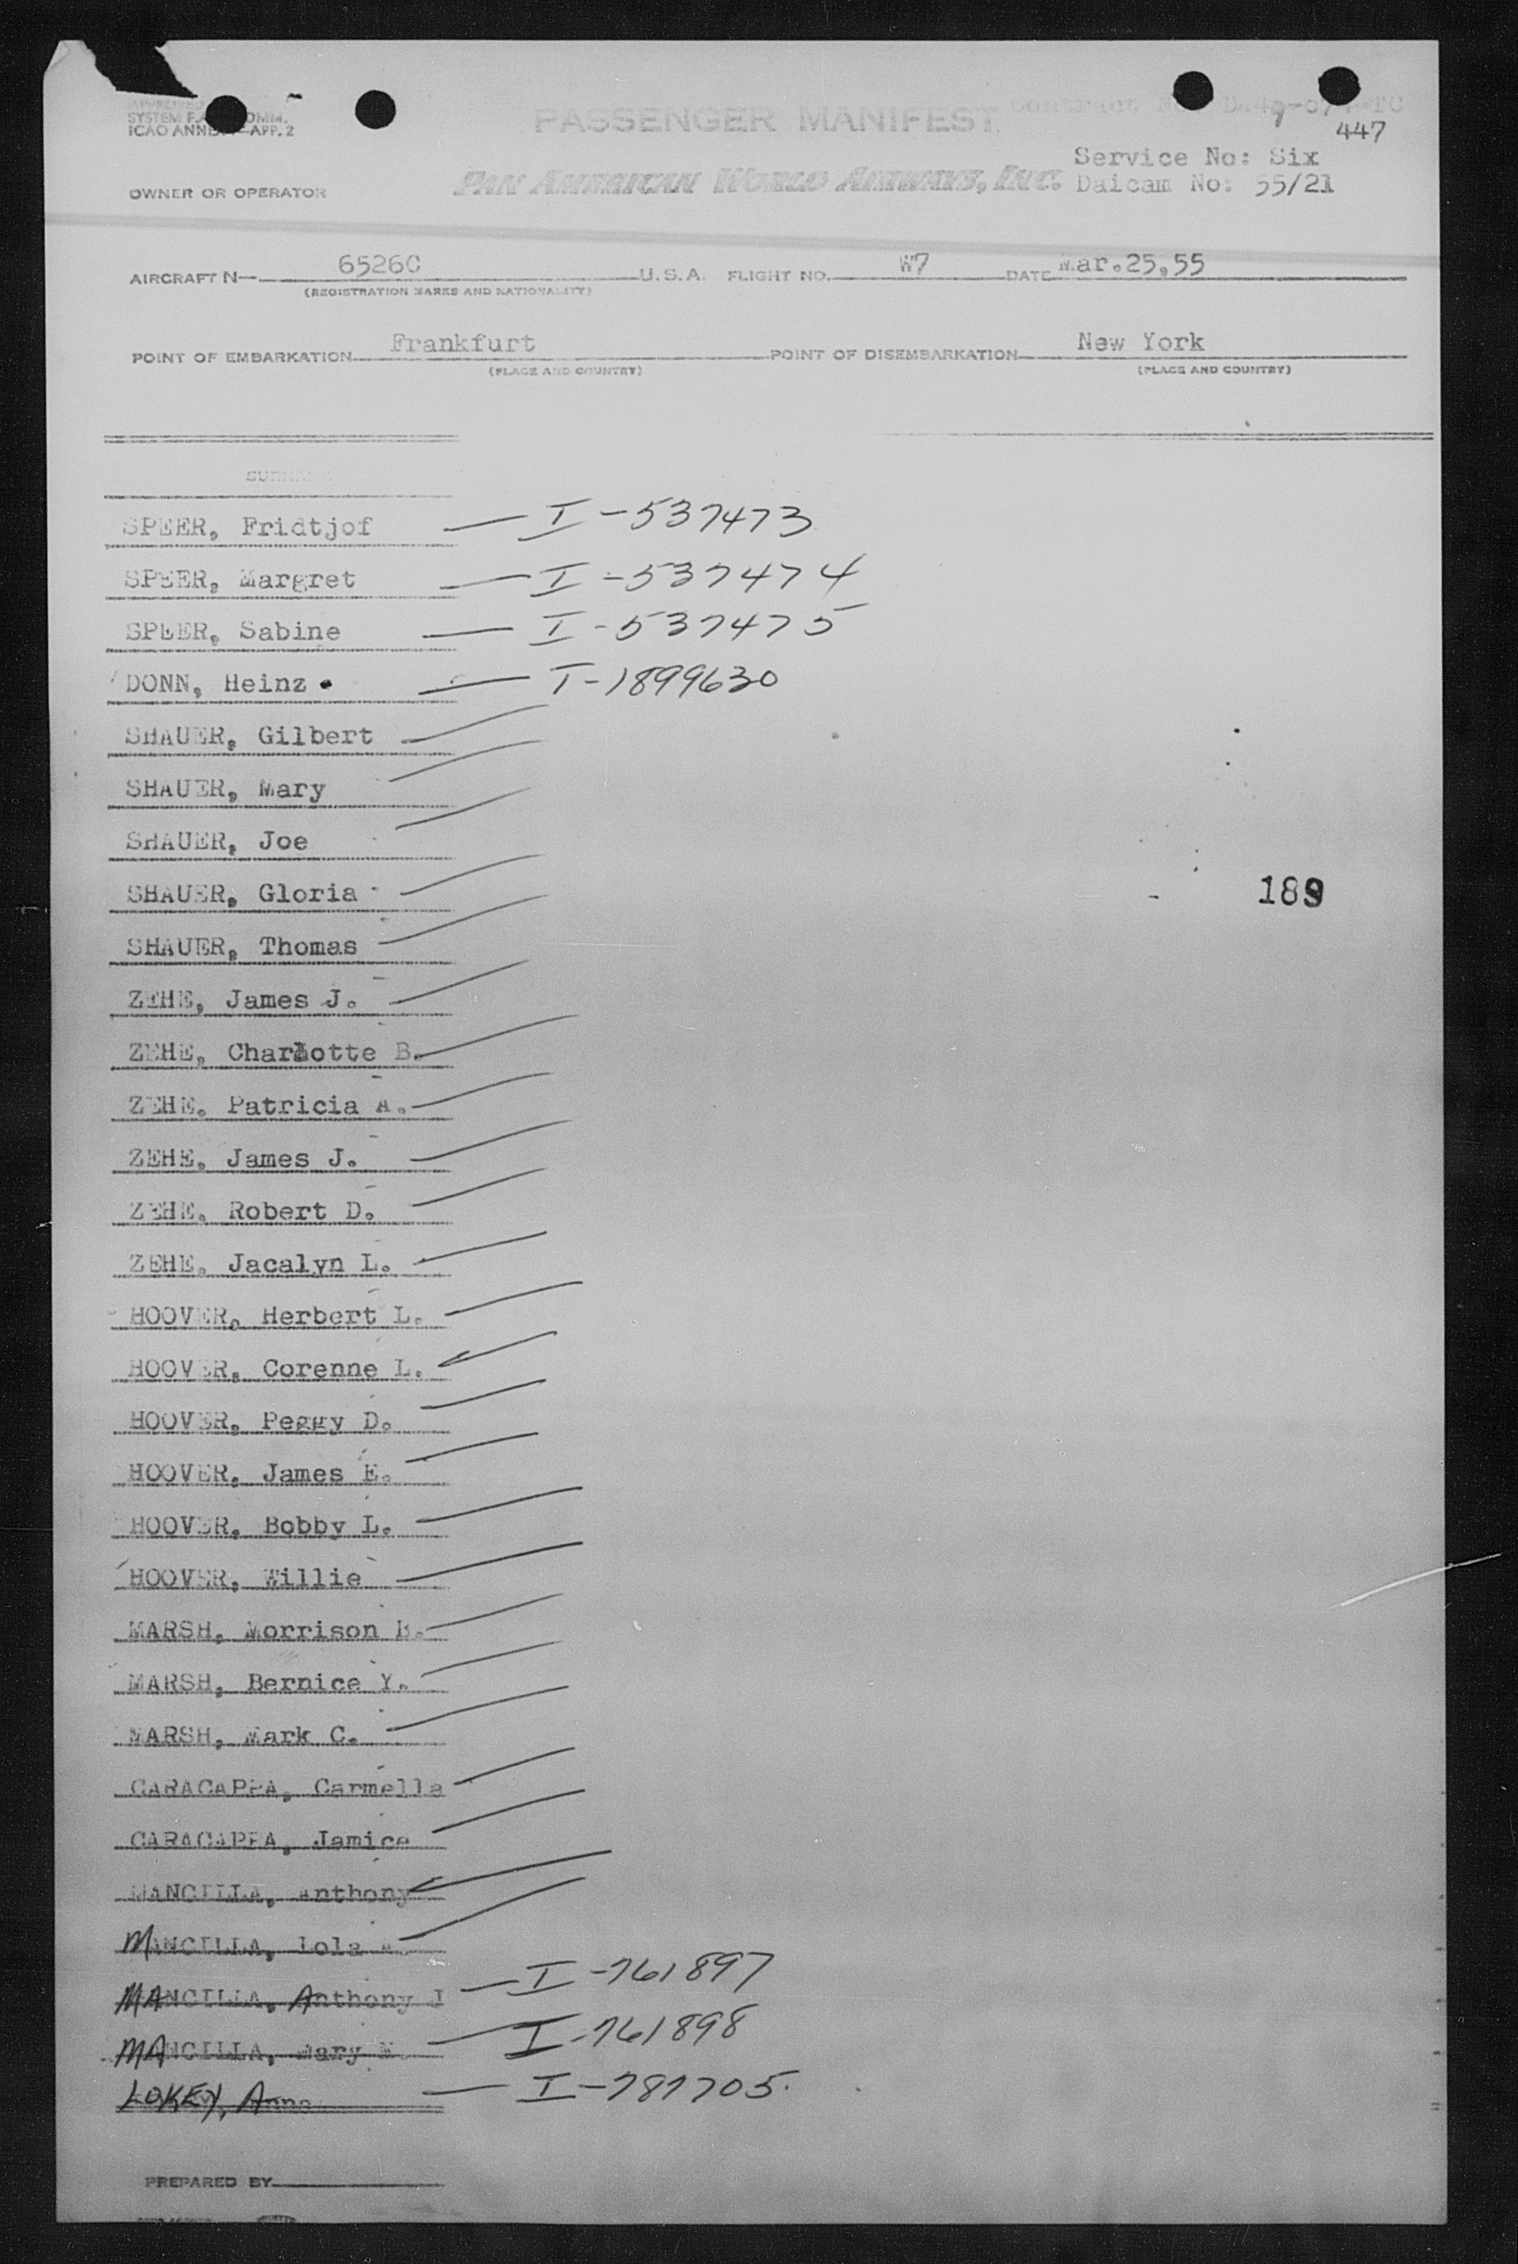 SYSTEM F. COMM.
ICAO ANNEX —APP. 2
PASSENGER MANIFEST
447
Service No: Six
OWNER OR OPERATOR PAN AMERICAN WORLD AIRWAYS, INC. Daicam No: 55/21
AIRCRAFT N— 6526C U.S.A. FLIGHT NO. W7 DATE Mar.25,55
(REGISTRATION MARKS AND NATIONALITY)
POINT OF EMBARKATION Frankfurt POINT OF DISEMBARKATION New York
(PLACE AND COUNTRY) (PLACE AND COUNTRY)
SPEER, Fridtjof — I-537473
SPEER, Margret — I-537474
SPEER, Sabine — I-537475
DONN, Heinz — I-1899630
SHAUER, Gilbert
SHAUER, Mary
SHAUER, Joe
SHAUER, Gloria
189
SHAUER, Thomas
ZEHE, James J.
ZEHE, Charlotte B.
ZEHE, Patricia A.
ZEHE, James J.
ZEHE, Robert D.
ZEHE, Jacalyn L.
HOOVER, Herbert L.
HOOVER, Corenne L.
HOOVER, Peggy D.
HOOVER, James E.
HOOVER, Bobby L.
HOOVER, Willie
MARSH, Morrison B.
MARSH, Bernice Y.
MARSH, Mark C.
CARACAPPA, Carmella
CARACAPPA, Jamice
MANCILLA, Anthony
MANCILLA, Lola
MANCILLA, Anthony J — I-761897
MANCILLA, Mary — I-761898
LOKEY, Anna — I-787705.
PREPARED BY